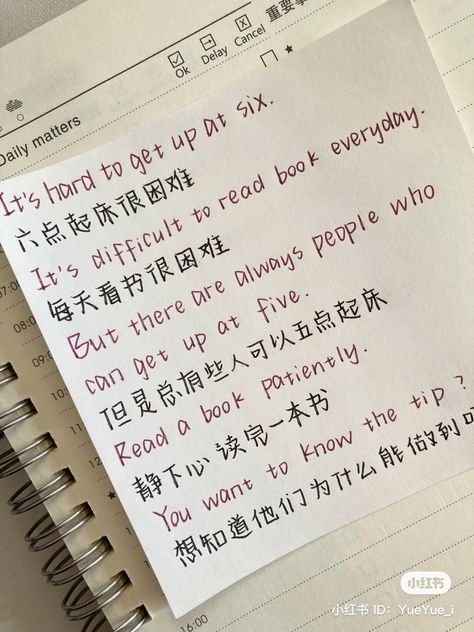 重要事
Ok
Delay
Cancel
Daily matters
It's hard to get up at six.
六点起床很困难
It's difficult to read book everyday.
每天看书很困难
But there are always people who
can get up at five.
但是总有些人可以五点起床
Read a book patiently.
静下心读完一本书
You want to know the tip?
想知道他们为什么能做到
07:00
08:00
09:00
10:00
12:00
16:00
小红书
小红书 ID: YueYue_i